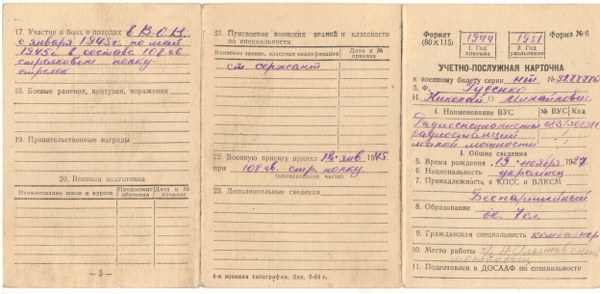 17. Участие в боях и походах в В.О.В.
с января 1945г. по май
1945г. в составе 108 гв.
стрелковом полку
стрелок
18. Боевые ранения, контузии, поражения
19. Правительственные награды
20. Военная подготовка
Наименование сбора и курсов
Продолжит. обучения
Дата и № приказа
— 5 —
21. Присвоение воинских званий и классности по специальности
Воинское звание, классная квалификация
Дата и № приказа
ст. сержант
22. Военную присягу принял 12 янв. 1945
при 108 гв. стр. полку
(наименование части)
23. Дополнительные сведения
4-я военная типография. Зак. 6-64 г.
Формат
(80×115)
1944
1. Год
призыва
1951
2. Год
увольнения
Форма № 6
УЧЕТНО-ПОСЛУЖНАЯ КАРТОЧКА
к военному билету серии НТ. №
3. Ф. Гусенко
И. Николай О. Михайлович
4. Наименование ВУС
№ ВУС
Код
Радиоспециалисты
радиостанций
малой мощности
I. Общие сведения
5. Время рождения 19 ноября 1927
6. Национальность украинец
7. Принадлежность к КПСС и ВЛКСМ
Беспартийный
8. Образование
7 кл.
9. Гражданская специальность комбайнер
10. Место работы
11. Подготовлен в ДОСААФ по специальности